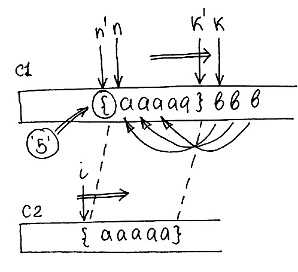 n' n k' k
C1
{ a a a a a } b b b
'5'
i
C2
{ a a a a a }